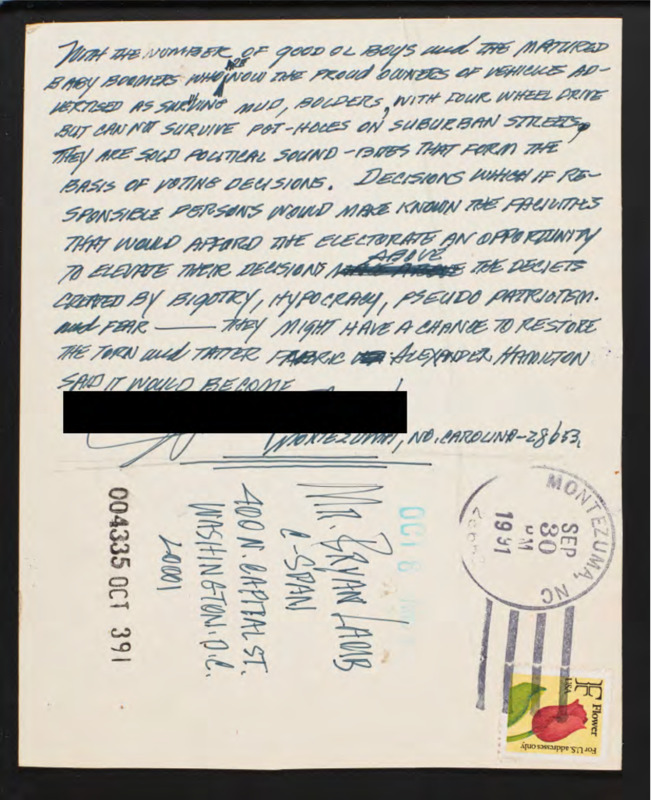 WITH THE NUMBER OF GOOD OL BOYS and THE MATURED
BABY BOOMERS WHO ARE NOW THE PROUD OWNERS OF VEHICLES AD-
VERTISED AS SURVIVING MUD, BOLDERS, WITH FOUR WHEEL DRIVE
BUT CAN NOT SURVIVE POT-HOLES ON SUBURBAN STREETS,
THEY ARE SOLD POLITICAL SOUND-BITES THAT FORM THE
BASIS OF VOTING DECISIONS. DECISIONS WHICH IF RE-
SPONSIBLE PERSONS WOULD MAKE KNOWN THE FACILITIES
THAT WOULD AFFORD THE ELECTORATE AN OPPORTUNITY
TO ELEVATE THEIR DECISIONS ABOVE THE DECIETS
BY BIGOTRY, HYPOCRACY, PSEUDO PATRIOTISM.
and FEAR — THEY MIGHT HAVE A CHANCE TO RESTORE
THE TORN and TATTER FABRIC ALEXANDER HAMILTON
SAID IT WOULD BECOME
MONTEZUMA, NO. CAROLINA-28653.
MR. BRYAN LAMB
C-SPAN
400 N. CAPITAL ST.
WASHINGTON. D.C.
20001
004335 OCT 391
OCT 8
MONTEZUMA, NC
SEP
30
PM
1991
F Flower
USA
For U.S. addresses only